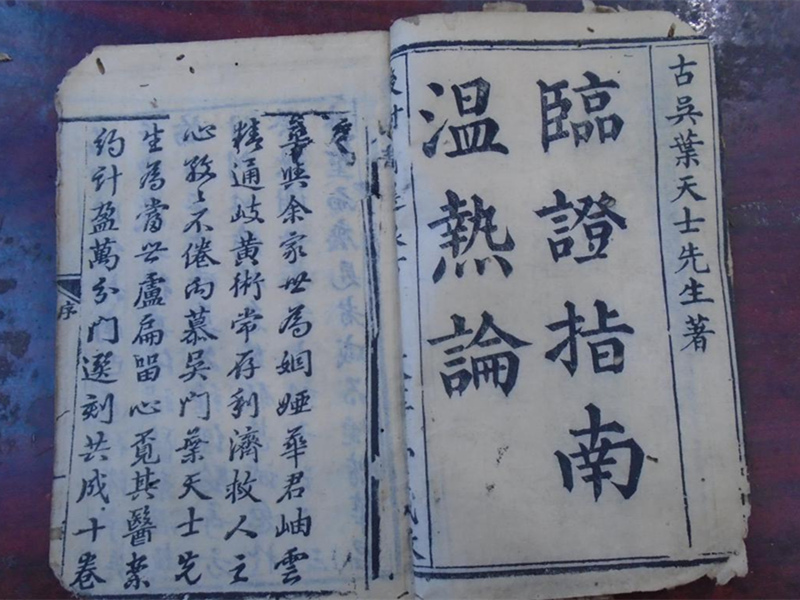 古吳葉天士先生著
臨證指南
溫熱論
序
華與余家世為姻婭華君岫雲
精通岐黃術常存利濟救人之
心孜〻不倦而慕吳門葉天士先
生為當世盧扁留心覓其醫案
約計盈萬分門選刻共成十卷
序